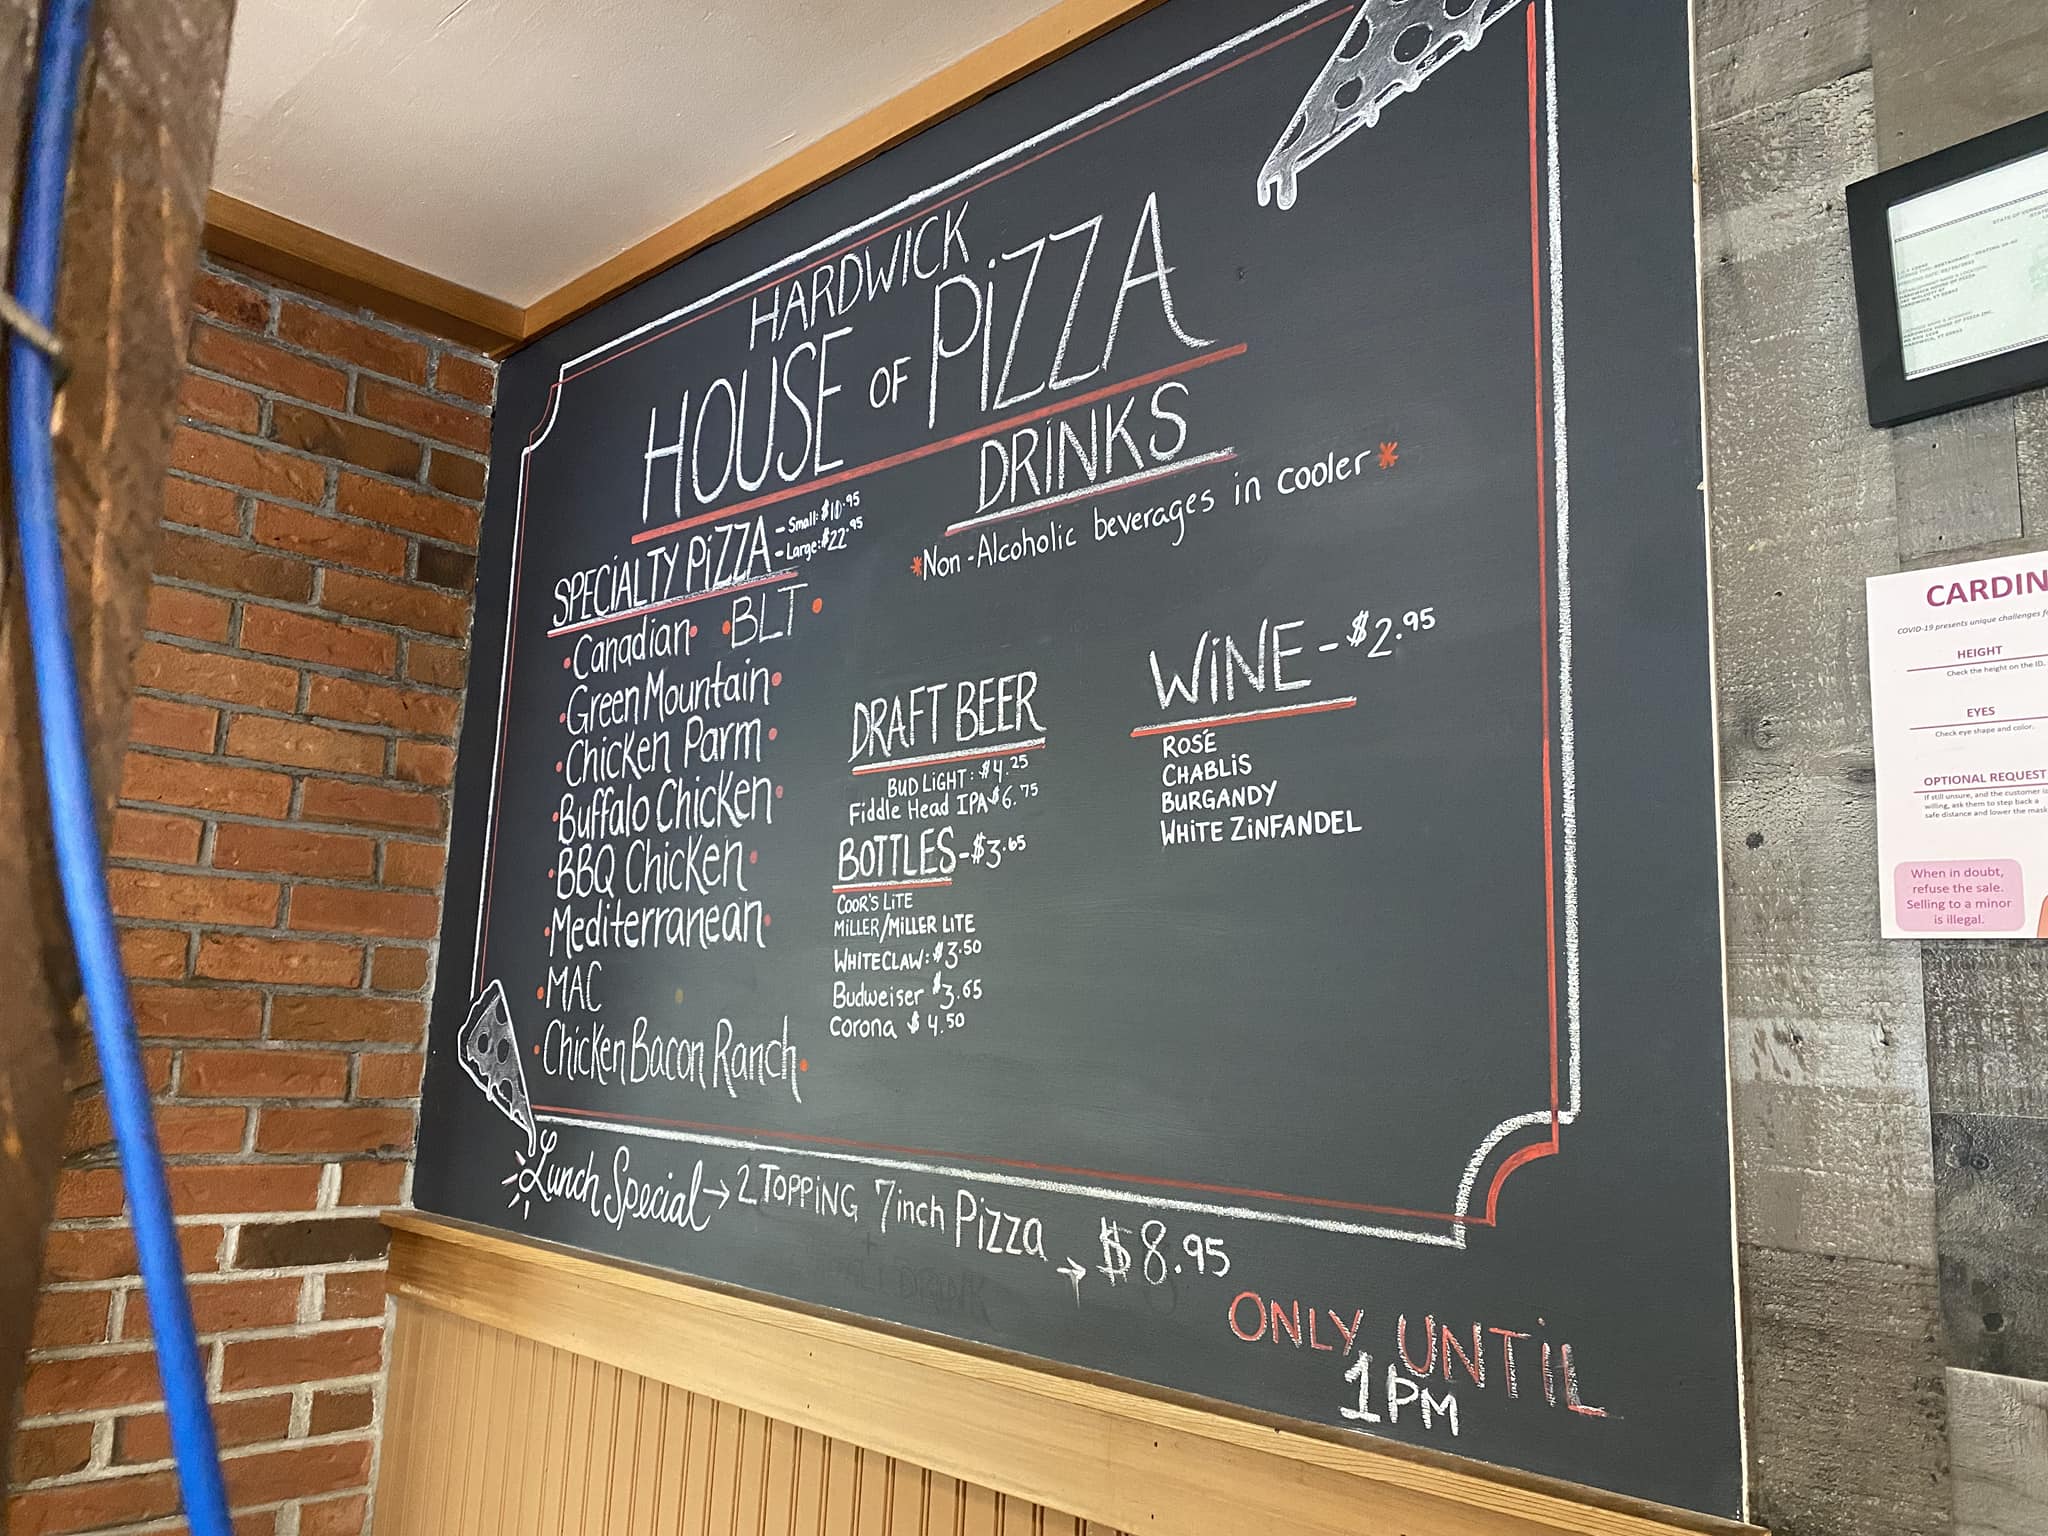 HARDWICK
HOUSE OF PiZZA
SPECiALTY PiZZA
- Small: $10.95
- Large: $22.95
Canadian BLT
Green Mountain
Chicken Parm
Buffalo Chicken
BBQ Chicken
Mediterranean
MAC
Chicken Bacon Ranch
DRiNKS
*Non-Alcoholic beverages in cooler*
DRAFT BEER
BUD LiGHT: $4.25
Fiddle Head IPA $6.75
BOTTLES - $3.65
COOR'S LiTE
MiLLER/MiLLER LiTE
WHITECLAW: $3.50
Budweiser $3.65
Corona $4.50
WiNE - $2.95
ROSÉ
CHABLiS
BURGANDY
WHiTE ZiNFANDEL
Lunch Special → 2 TOPPiNG 7 inch Pizza → $8.95
ONLY UNTiL
1PM
STATE OF VERMON
CARDIN
COVID-19 presents unique challenges f
HEIGHT
Check the height on the ID.
EYES
Check eye shape and color.
OPTIONAL REQUEST
If still unsure, and the customer is
willing, ask them to step back a
safe distance and lower the mask
When in doubt,
refuse the sale.
Selling to a minor
is illegal.